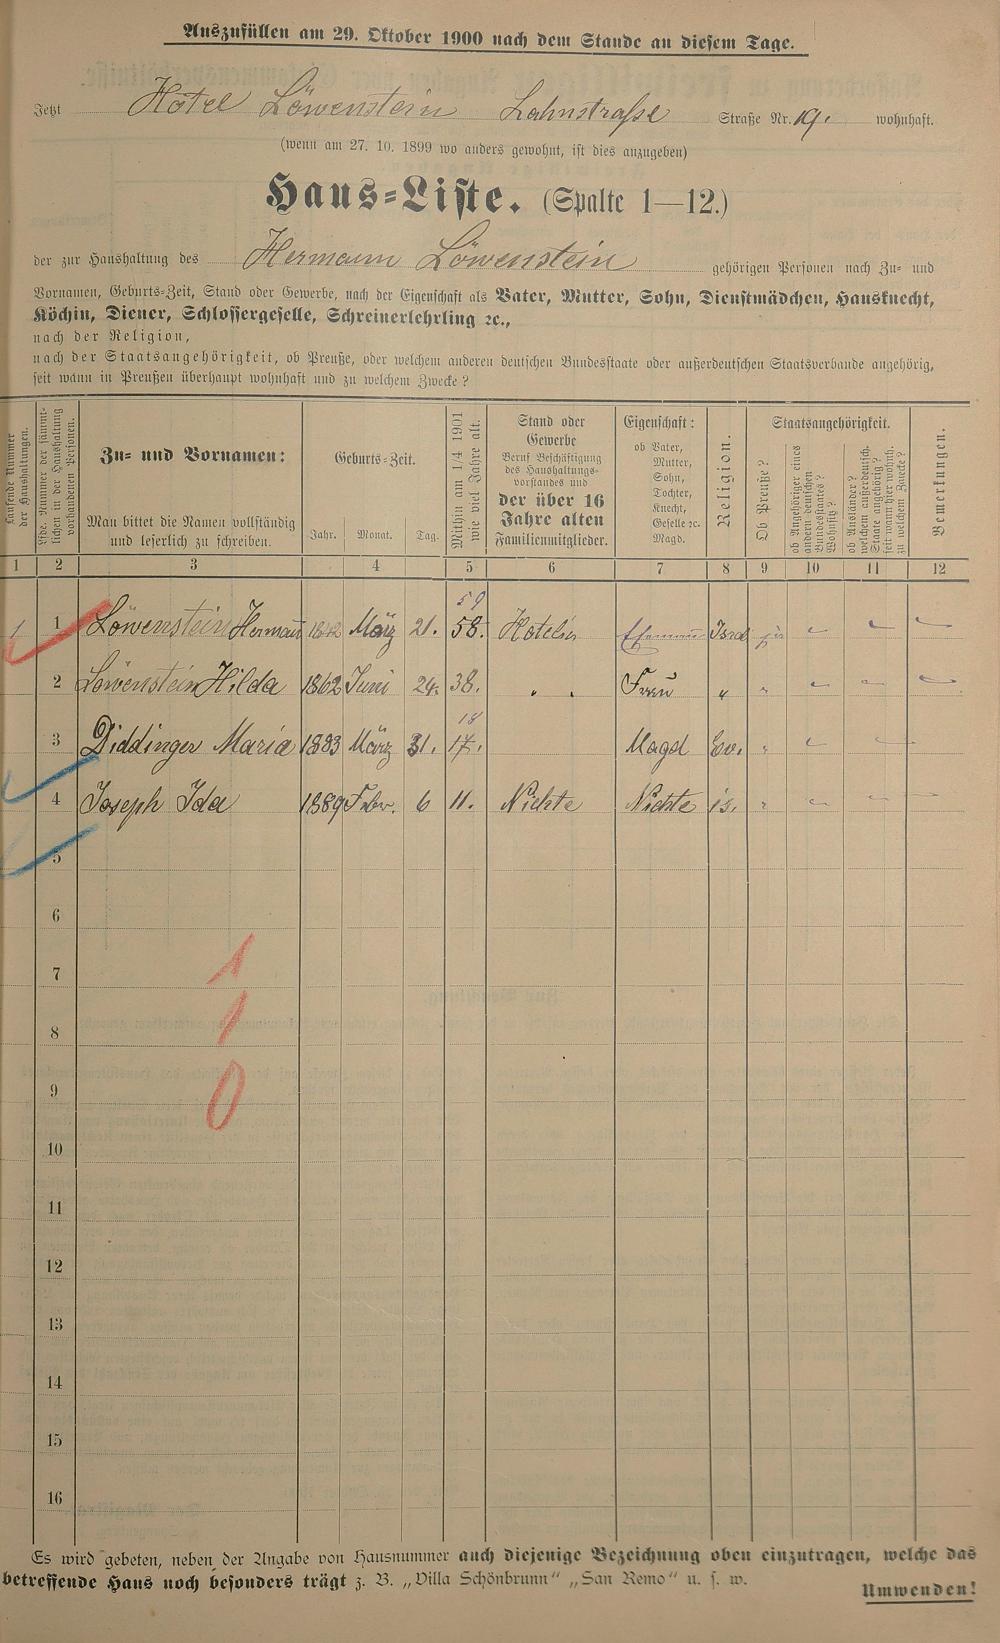 Auszufüllen am 29. Oktober 1900 nach dem Stande an diesem Tage.
Jetzt Hotel Löwenstein Lahnstraße Straße Nr. 19. wohnhaft.
(wenn am 27. 10. 1899 wo anders gewohnt, ist dies anzugeben)
Haus-Liste. (Spalte 1—12.)
der zur Haushaltung des Hermann Löwenstein gehörigen Personen nach Zu- und
Vornamen, Geburts-Zeit, Stand oder Gewerbe, nach der Eigenschaft als Vater, Mutter, Sohn, Dienstmädchen, Hausknecht,
Köchin, Diener, Schlossergeselle, Schreinerlehrling ꝛc.,
nach der Religion,
nach der Staatsangehörigkeit, ob Preuße, oder welchem anderen deutschen Bundesstaate oder außerdeutschen Staatsverbande angehörig,
seit wann in Preußen überhaupt wohnhaft und zu welchem Zwecke?
Laufende Nummer
der Haushaltungen.
Lfde. Nummer der sämmt-
lichen in der Haushaltung
vorhandenen Personen.
Zu- und Vornamen:
Man bittet die Namen vollständig
und leserlich zu schreiben.
Geburts-Zeit.
Jahr. Monat. Tag.
Mithin am 1/4 1901
wie viel Jahre alt.
Stand oder
Gewerbe
Beruf Beschäftigung
des Haushaltungs-
vorstandes und
der über 16
Jahre alten
Familienmitglieder.
Eigenschaft:
ob Vater,
Mutter,
Sohn,
Tochter,
Knecht,
Geselle ꝛc.
Magd.
Religion.
Staatsangehörigkeit.
Ob Preuße?
ob Angehöriger eines
andern deutschen
Bundesstaates?
Wohnsitz?
ob Ausländer?
welchem außerdeutsch.
Staate angehörig?
seit wann hier wohnh.
zu welchem Zwecke?
Bemerkungen.
1 2 3 4 5 6 7 8 9 10 11 12
59
1 1 Löwenstein Hermann 1842 März 21. 58. Isrl
2 Löwenstein Hilda 1862 Juni 24. 38. " " Frau " "
18
3 Diddinger Maria 1883 März 31. 17. Magd Ev. "
4 Joseph Ida 1889 Febr. 6 11. Nichte Nichte is. "
5
6
7 1
8 1
9 0
10
11
12
13
14
15
16
Es wird gebeten, neben der Angabe von Hausnummer auch diejenige Bezeichnung oben einzutragen, welche das
betreffende Haus noch besonders trägt z. B. „Villa Schönbrunn“ „San Remo“ u. s. w.
Umwenden!